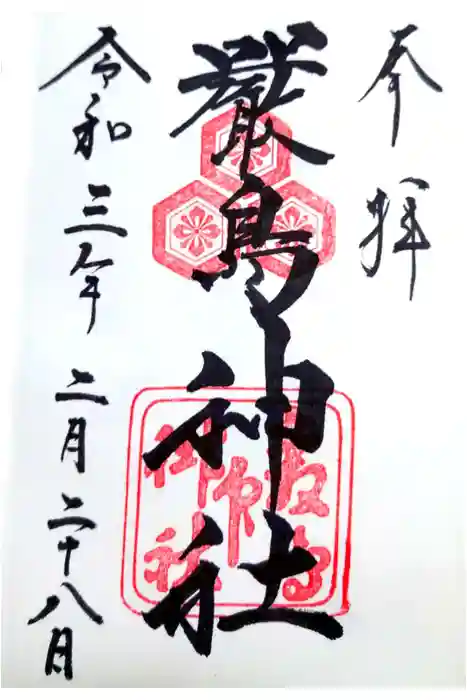 奉拝
厳島神社
令和三年二月二十八日